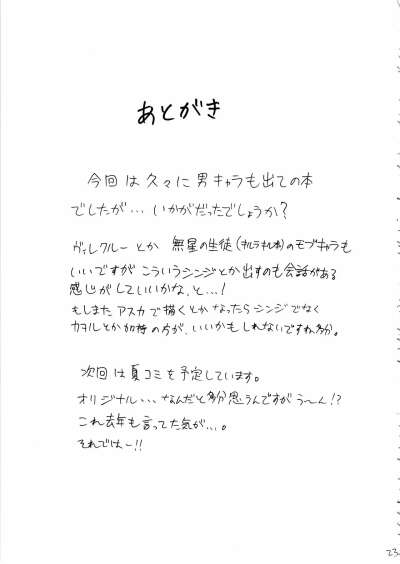 あとがき
今回は久々に男キャラも出ての本
でしたが…いかがだったでしょうか?
ヴィレクルーとか 無星の生徒(キルラキル本)のモブキャラも
いいですがこういうシンジとか出すのも会話がある
感じがしていいかな、と…!
もしまたアスカで描くとかなったらシンジでなく
カヲルとか加持の方が、いいかもしれないですね多分。
次回は夏コミを予定しています。
オリジナル…なんだと多分思うんですがう〜ん!?
これ去年も言ってた気が…。
それではー!!
23